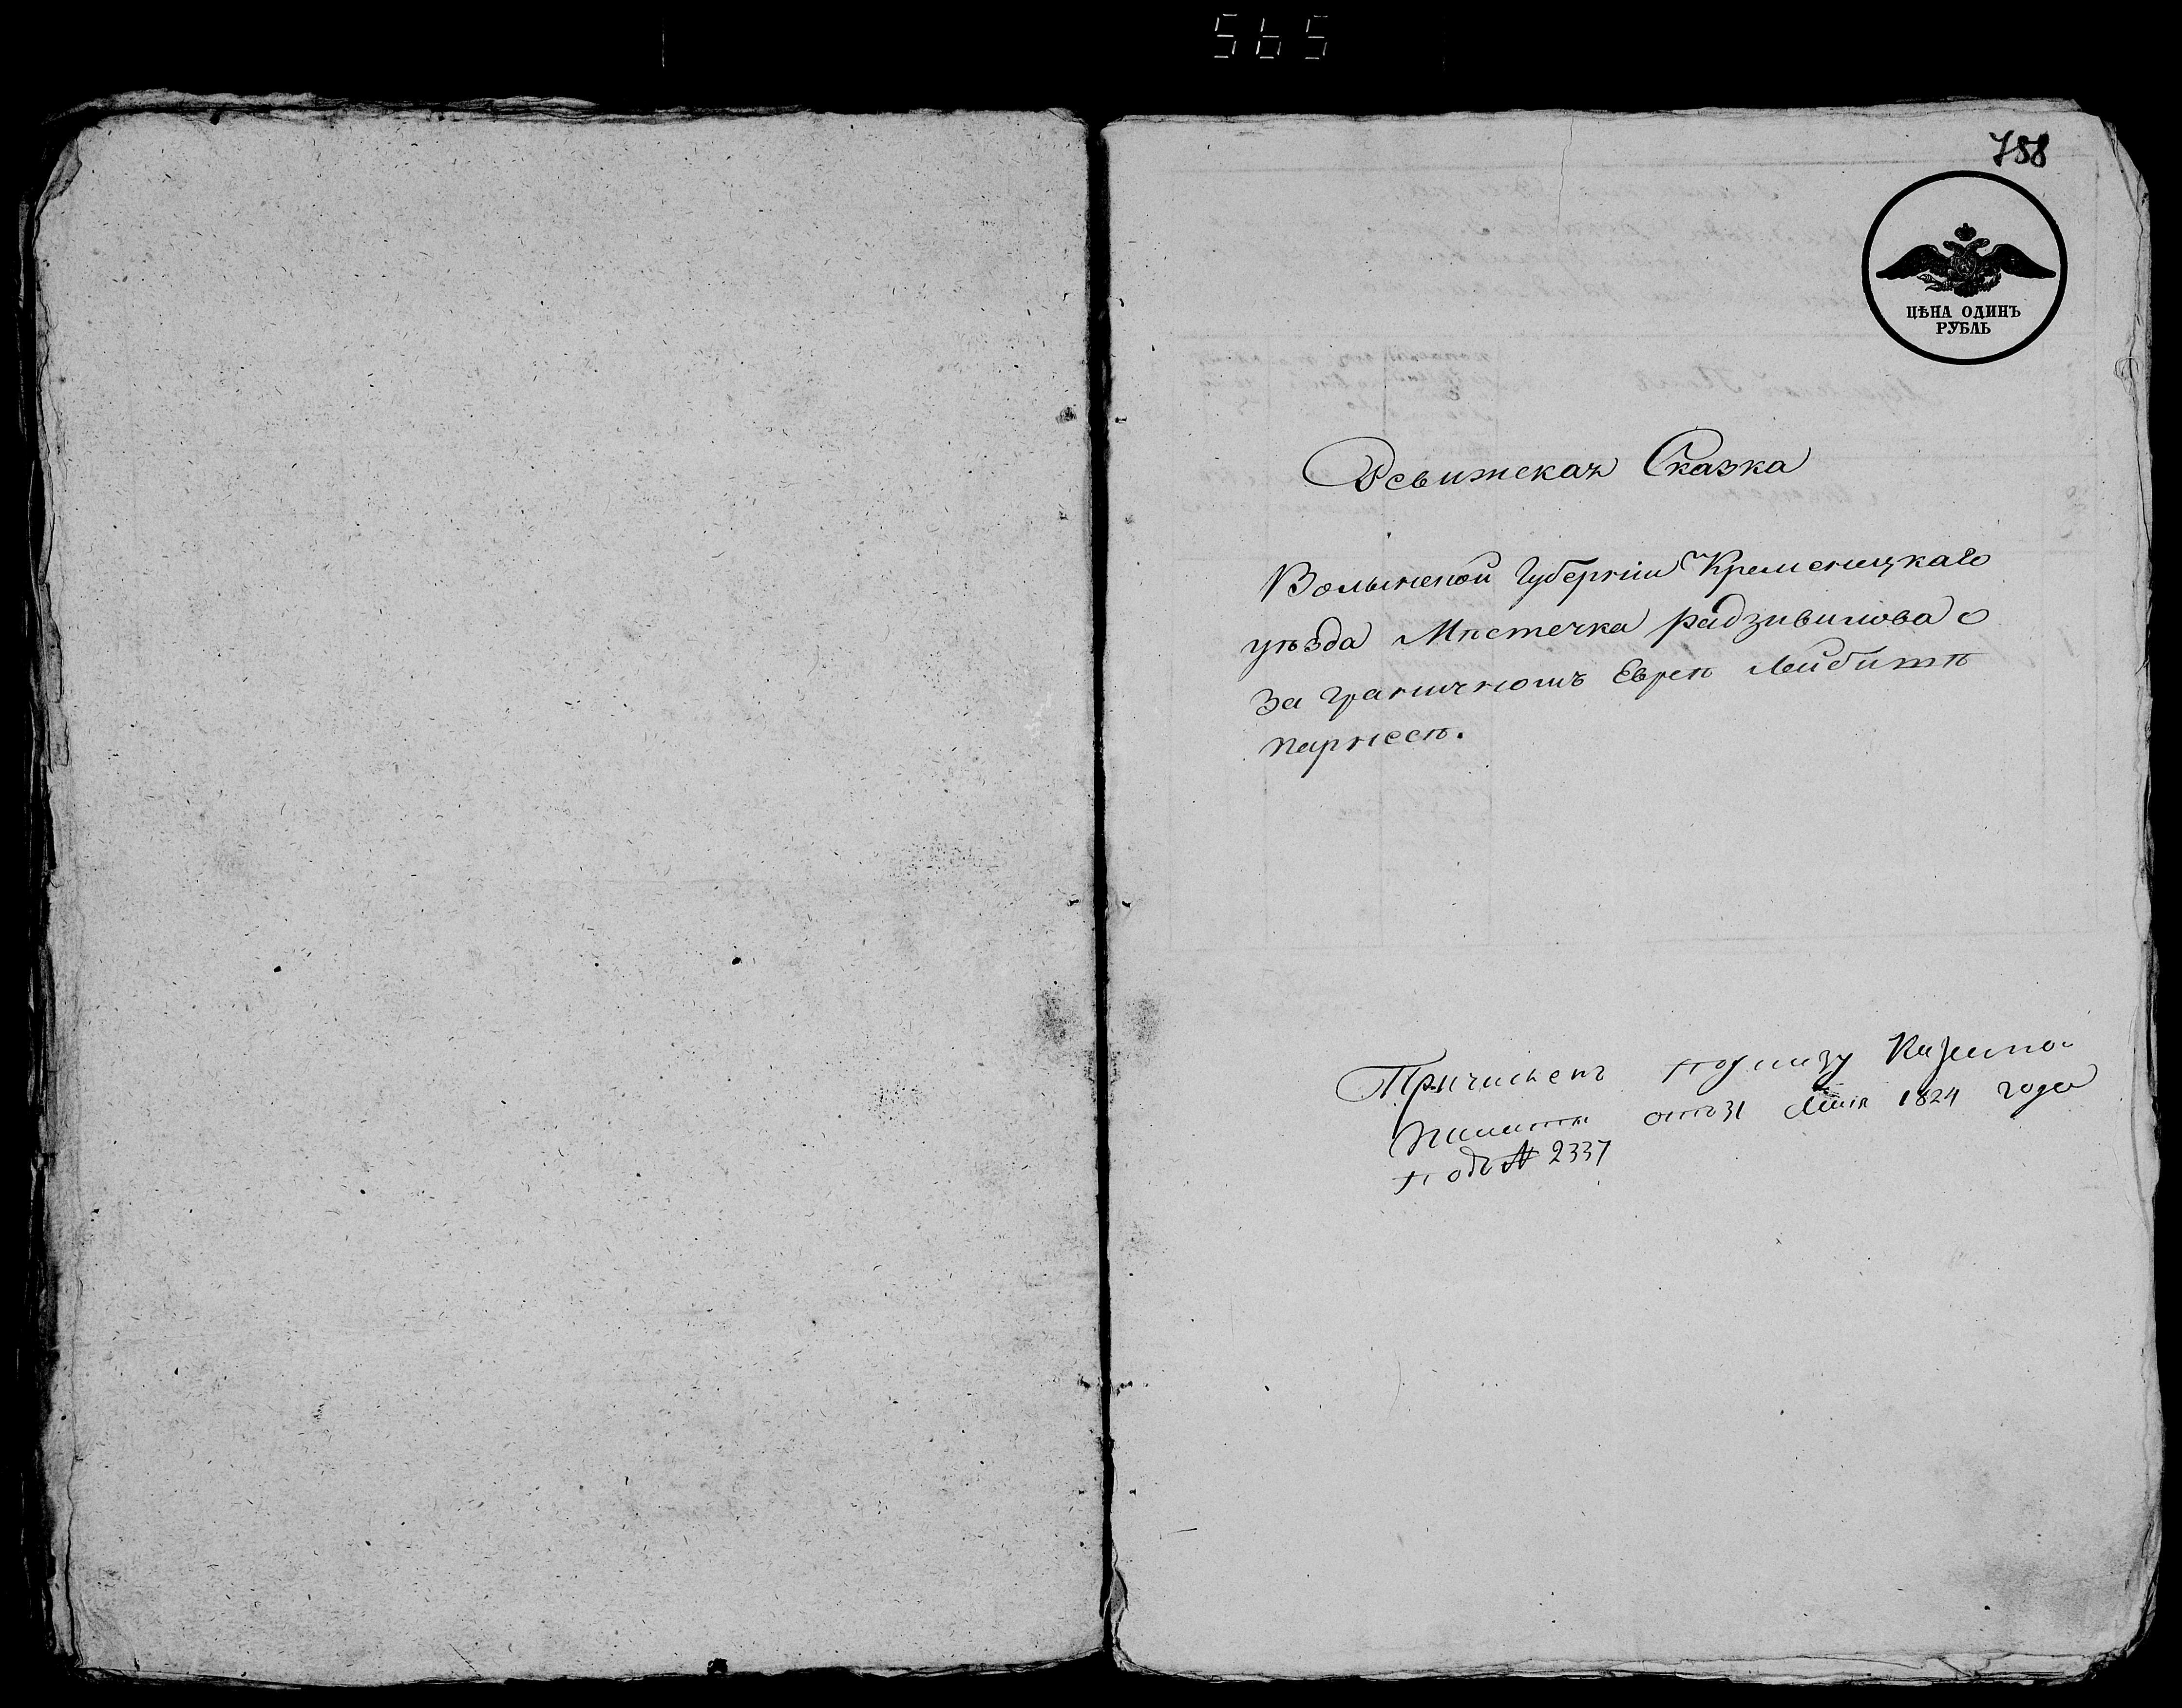 565
788
ЦѢНА ОДИНЪ
РУБЛЬ
Ревижская Сказка
Волынской Губерніи Кременецкаго
уѣзда Мѣстечка радзивилова о
За граничномъ Евреѣ Лейбитѣ
парнесѣ.
Причисленъ по указу Казенной
Палаты отъ 31 Маія 1824 года
подъ № 2337